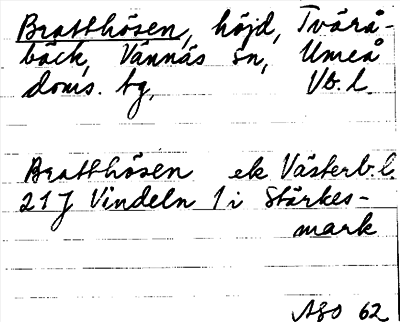 Bratthösen, höjd, Tvärå-
bäck, Vännäs sn, Umeå
doms. tg, Vb. l.
Bratthösen ek Västerb. l
21 J Vindeln 1 i Stärkes-
mark
ASO 62